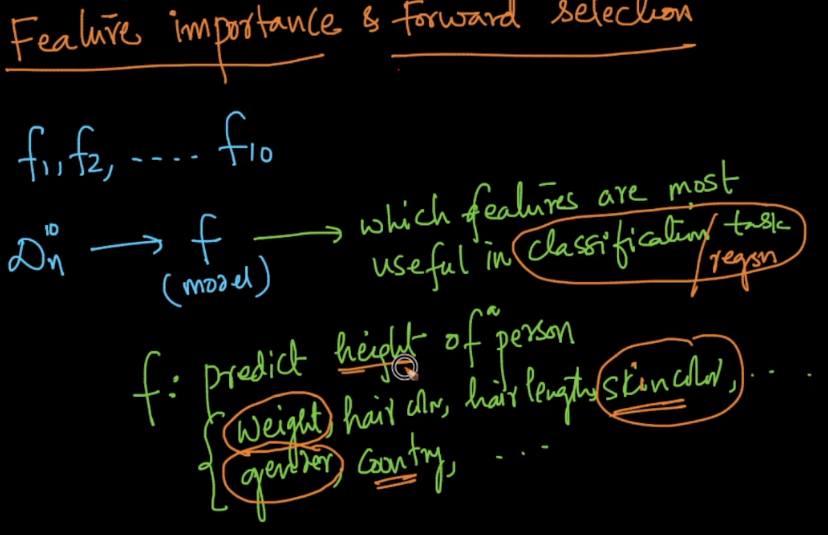 Feature importance & forward selection
f1, f2, ..... f10
Dn^10 → f → which features are most
(model) useful in classification/ task
regsn
f: predict height of a person
{ weight, hair clr, hair length, skin color, ...
gender, country, ...